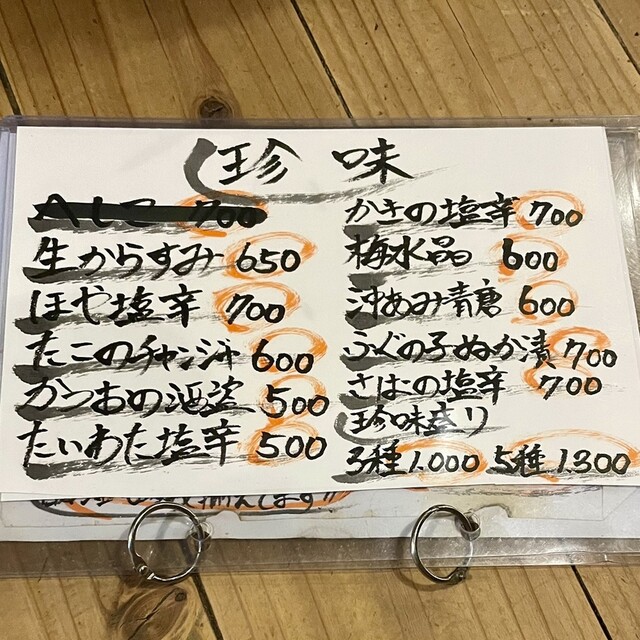 珍味
へしこ 700
生からすみ 650
ほや塩辛 700
たこのチャンジャ 600
かつおの酒盗 500
たいわた塩辛 500
かきの塩辛 700
梅水晶 600
沖あみ青唐 600
ふぐの子ぬか漬 700
さばの塩辛 700
珍味盛り
3種 1.000 5種 1.300
揃えてます!!